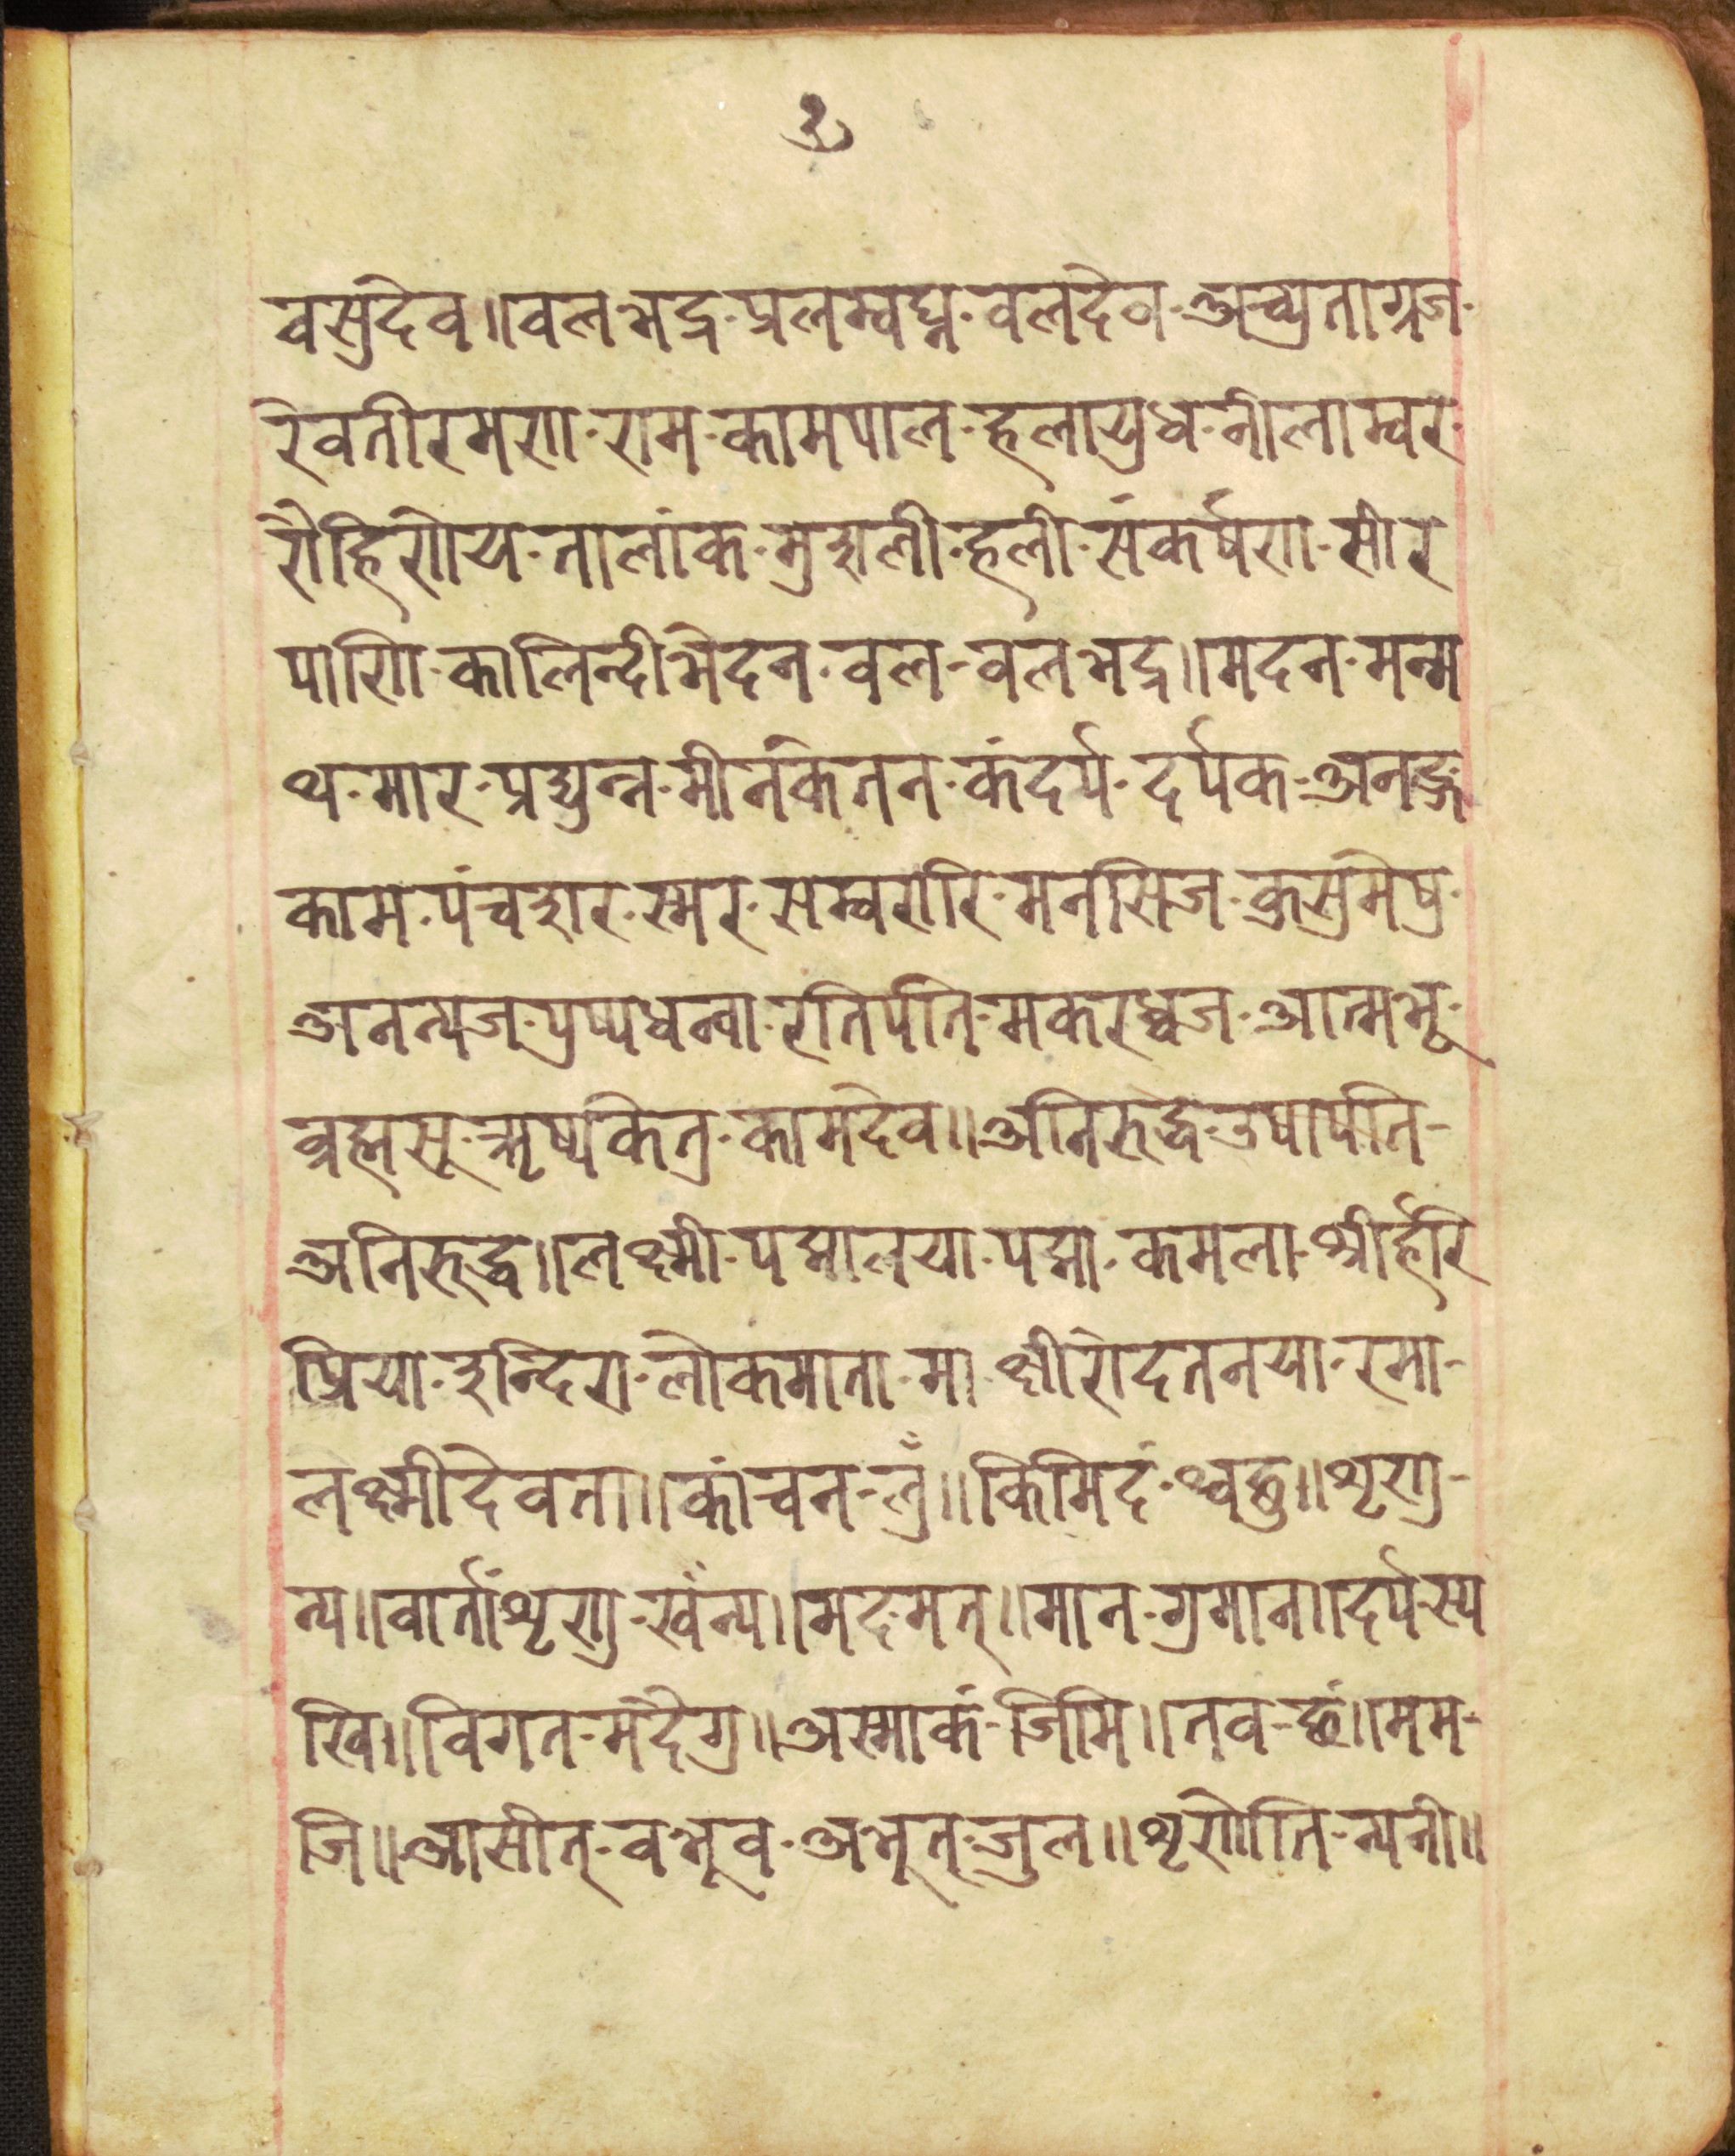 ३
वसुदेव॥वलभद्र-प्रलम्वघ्न-वलदेव-अच्युताग्रज-
रेवतीरमण-राम-कामपाल-हलायुध-नीलाम्वर-
रौहिणेय-तालांक-मुशली-हली-संकर्षण-सीर
पाणि-कालिन्दीभेदन-वल-वलभद्र॥मदन-मन्म
थ-मार-प्रद्युन्न-मीनकेतन-कंदर्प-दर्पक-अनङ्ग
काम-पंचशर-स्मर-सम्वरारि-मनसिज-कुसुमेषु-
अनन्यज-पुष्पधन्वा-रतिपति-मकरध्वज-आत्मभू-
व्रह्मसू-ऋष्यकेतु-कामदेव॥अनिरुद्ध-उषापति-
अनिरुद्ध॥लक्ष्मी-पद्मालया-पद्मा-कमला-श्रीर्हरि
प्रिया-इन्दिरा-लोकमाता-मा-क्षीरोदतनया-रमा-
लक्ष्मीदेवता॥कांचन-लुँ॥किमिदं-थ्वछु॥शृणु-
न्य॥वार्तांशृणु-खँन्य॥मद-मत्॥मान-गुमान॥दर्प-स्य
खि॥विगत-मदैगु॥अस्माकं-जिमि॥तव-छं॥मम-
जि॥आसीत्-वभूव-अभूत्-जुल॥शृणोति-न्यनी॥